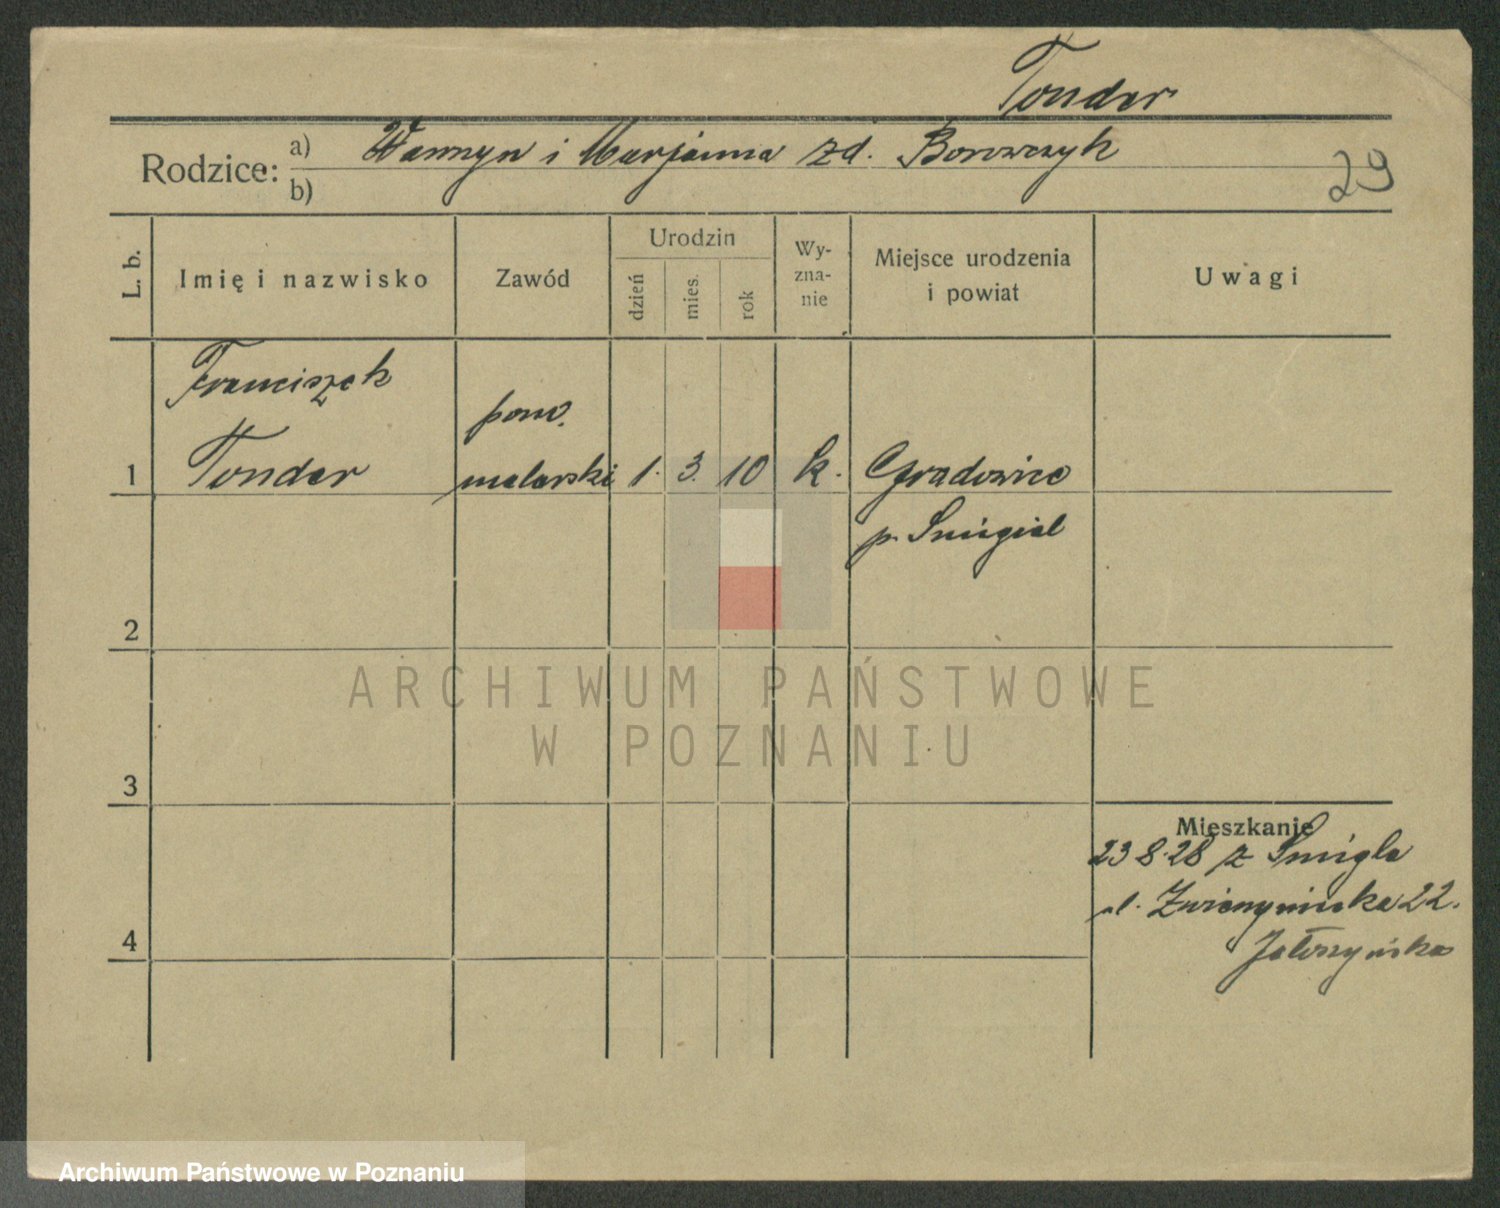 Tonder
Rodzice: a) Wawrzyn i Marjanna zd. Borowczyk
b)
29
L. b.
Imię i nazwisko
Zawód
Urodzin
dzień
mies.
rok
Wy-
zna-
nie
Miejsce urodzenia
i powiat
Uwagi
Franciszek
pom.
1 Tonder malarski 1. 3. 10 k. Gradowice
p. Śmigiel
2
ARCHIWUM PAŃSTWOWE
W POZNANIU
3
Mieszkanie
23 8.28 z Śmigla
ul. Zwierzyniecka 22.
4
Archiwum Państwowe w Poznaniu